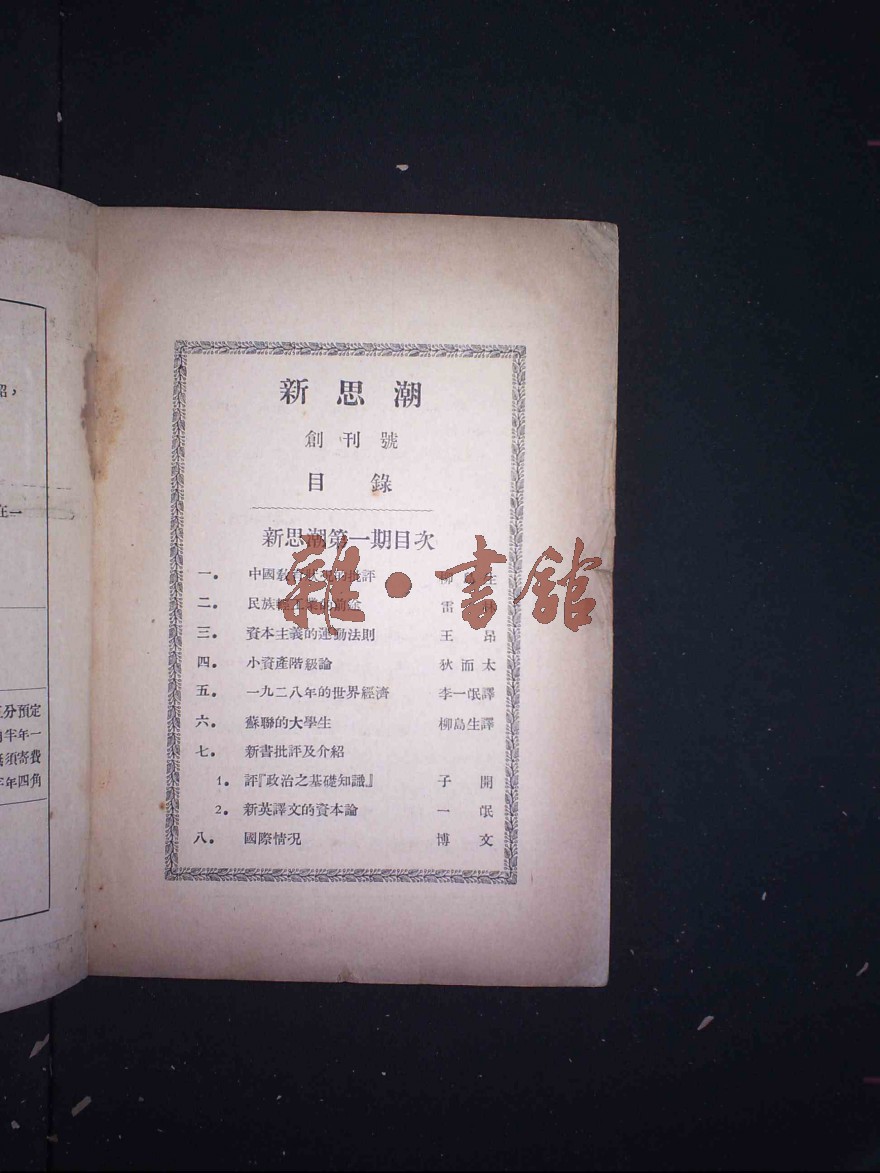 紹，
在一
三分預定
期半年一
無須寄費
三年四角
新思潮
創刊號
目錄
新思潮第一期目次
雜·書館
一． 中國教育狀況的批評 柳島生
二． 民族輕工業的前途 雷林
三． 資本主義的運動法則 王昂
四． 小資產階級論 狄而太
五． 一九二八年的世界經濟 李一氓譯
六． 蘇聯的大學生 柳島生譯
七． 新書批評及介紹
1． 評『政治之基礎知識』 子開
2． 新英譯文的資本論 一氓
八． 國際情況 博文